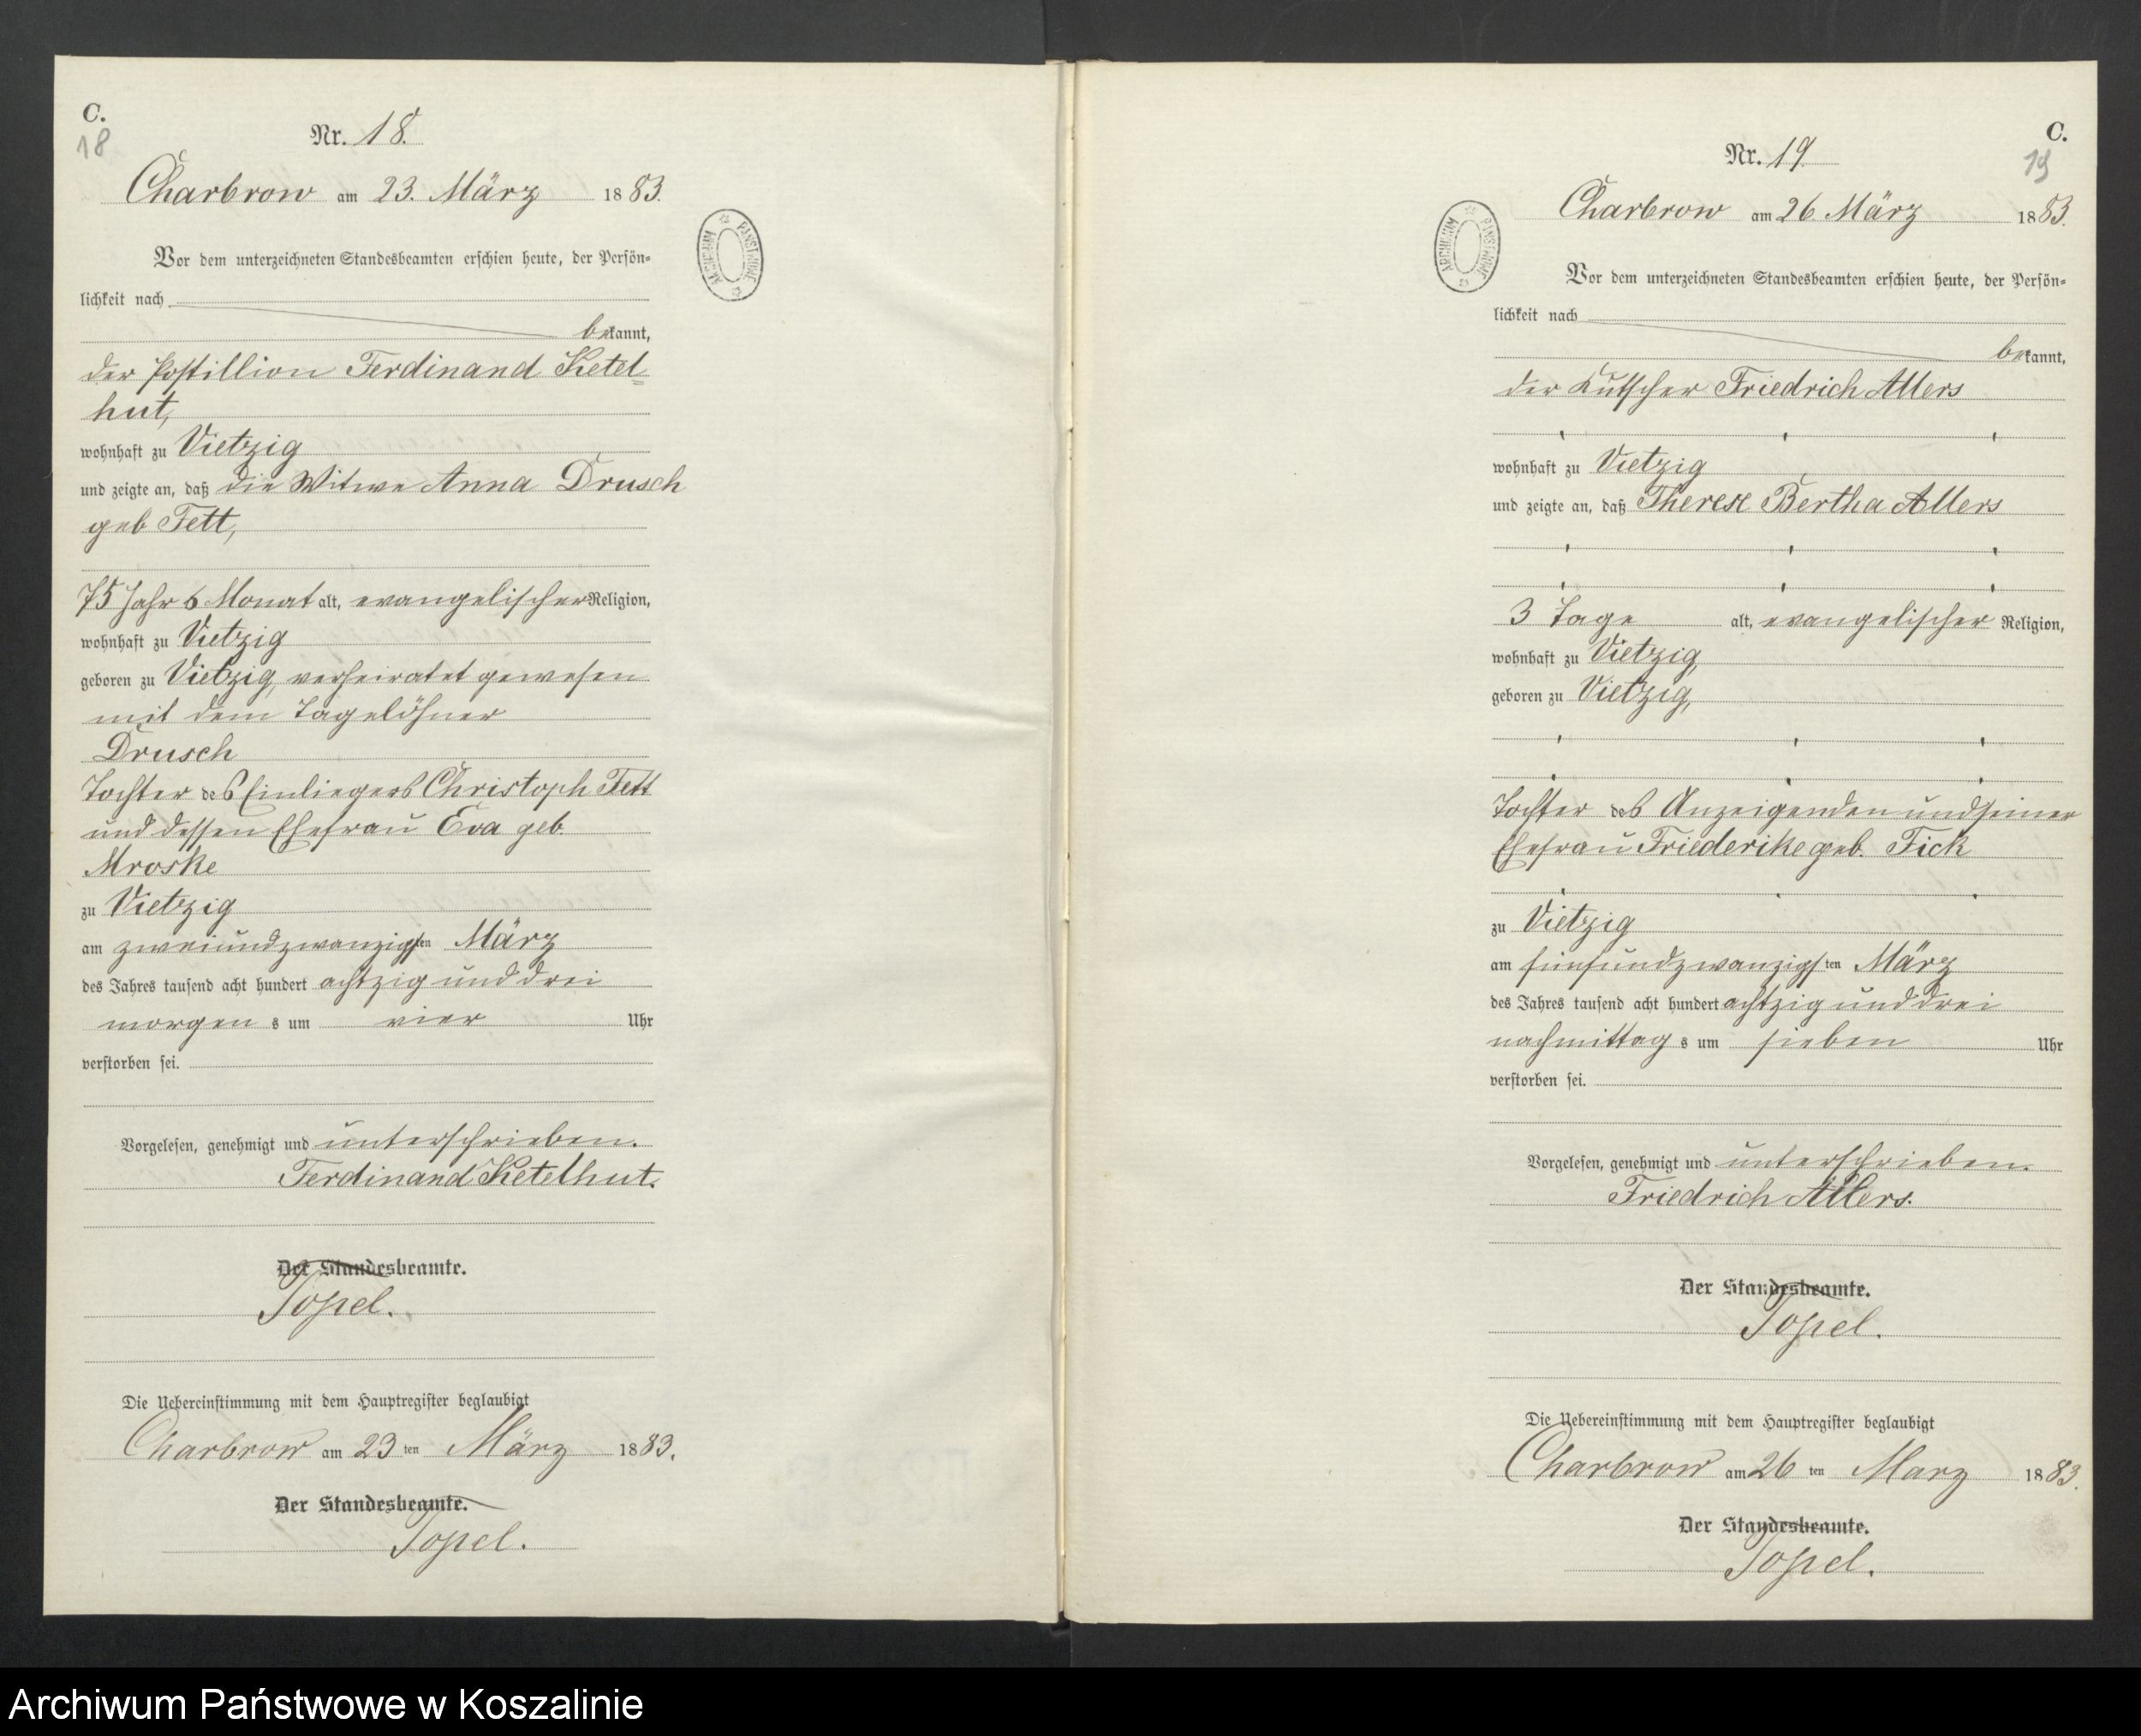 C.
18
Nr. 18.
Charbrow am 23. März 1883.
Vor dem unterzeichneten Standesbeamten erschien heute, der Persön=
lichkeit nach
bekannt,
der Postillion Ferdinand Ketel=
hut,
wohnhaft zu Vietzig
und zeigte an, daß die Witwe Anna Drusch
geb Fett,
75 Jahr 6 Monat alt, evangelischer Religion,
wohnhaft zu Vietzig
geboren zu Vietzig, verheiratet gewesen
mit dem Tagelöhner
Drusch
Tochter des Einliegers Christoph Fett
und dessen Ehefrau Eva geb.
Mroske
zu Vietzig
am zweiundzwanzigsten März
des Jahres tausend acht hundert achtzig und drei
morgens um vier Uhr
verstorben sei.
Vorgelesen, genehmigt und unterschrieben.
Ferdinand Ketelhut.
Der Standesbeamte.
Topel.
Die Uebereinstimmung mit dem Hauptregister beglaubigt
Charbrow am 23ten März 1883.
Der Standesbeamte.
Topel.
ARCHIWUM PAŃSTWOWE
C.
19
Nr. 19
Charbrow am 26 März 1883.
ARCHIWUM PAŃSTWOWE
Vor dem unterzeichneten Standesbeamten erschien heute, der Persön=
lichkeit nach
bekannt,
der Kutscher Friedrich Allers
wohnhaft zu Vietzig
und zeigte an, daß Therese Bertha Allers
3 Tage alt, evangelischer Religion,
wohnhaft zu Vietzig,
geboren zu Vietzig,
Tochter des Anzeigenden und seiner
Ehefrau Friederike geb. Fick
zu Vietzig
am fünfundzwanzigsten März
des Jahres tausend acht hundert achtzig und drei
nachmittags um sieben Uhr
verstorben sei.
Vorgelesen, genehmigt und unterschrieben.
Friedrich Allers.
Der Standesbeamte.
Topel.
Die Uebereinstimmung mit dem Hauptregister beglaubigt
Charbrow am 26ten Marz 1883.
Der Standesbeamte.
Topel.
Archiwum Państwowe w Koszalinie